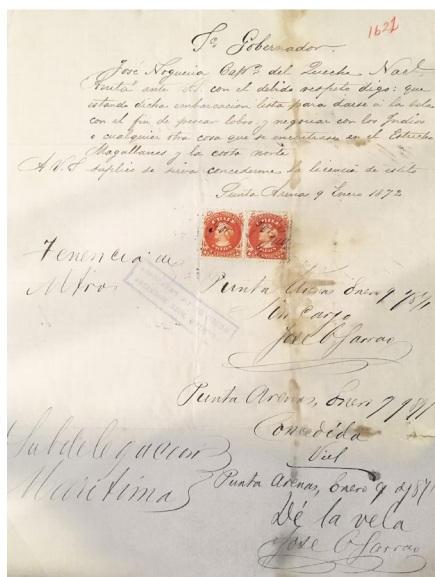 1621
Sr. Gobernador.
José Nogueira Capn. del Queche Nacl.
"Anita" ante U.S. con el debido respeto digo: que
estando dicha embarcacion lista para darse á la bela
con el fin de pescar lobos y negociar con los Indios
o cualquier otra cosa que se encontrase en el Estrecho
Magallanes y la costa norte
A V.S. suplico se sirva concederme la licencia de estilo
Punta Arenas 9 Enero 1872
CHILE CHILE
Tenencia de
Mtros
Punta Arenas Enero 9
Sin cargo
José
Punta Arenas, Enero 9
Concedida
Viel
Subdelegacion
Maritima
Punta Arenas, Enero 9
Dé la vela
José